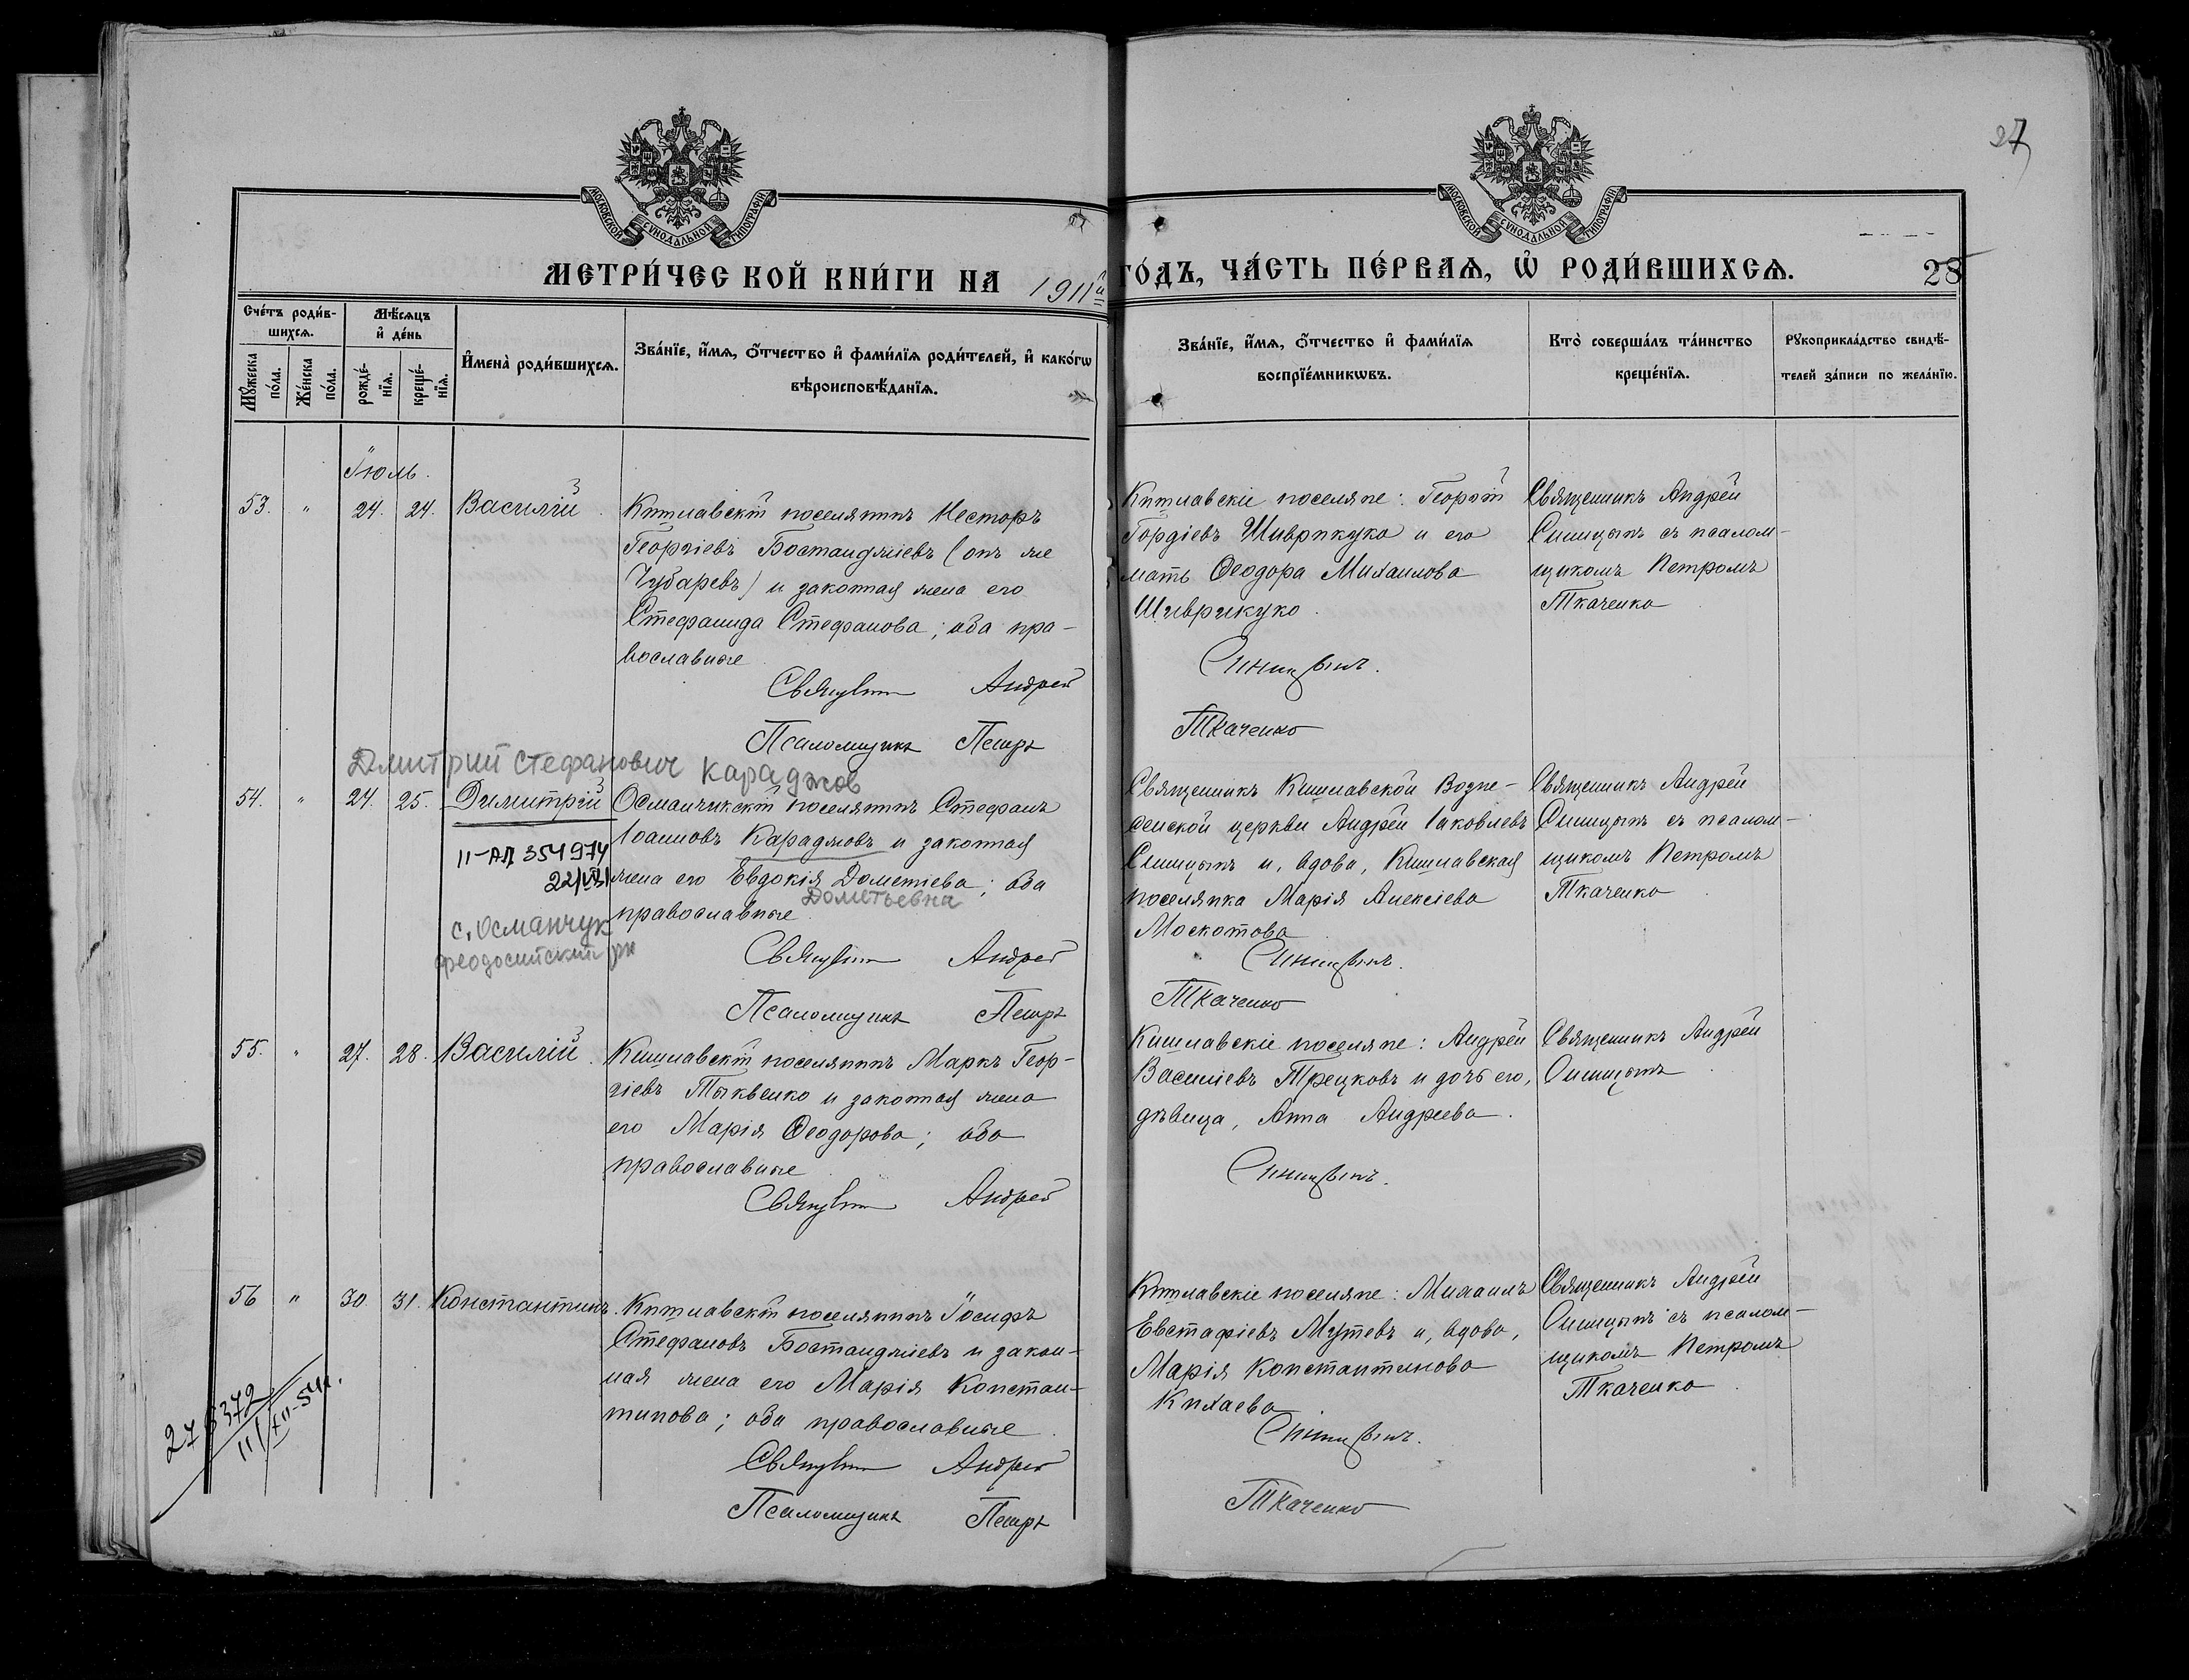 27
МОСКОВСКОЙ СѴНОДАЛЬНОЙ ТИПОГРАФІИ.
МОСКОВСКОЙ СѴНОДАЛЬНОЙ ТИПОГРАФІИ.
МЕТРИ́ЧЕСКОЙ КНИ́ГИ НА 1911й ГО́ДЪ, ЧА́СТЬ ПЕ́РВАѦ, Ѡ҆ РОДИ́ВШИХСѦ. 28
Сче́тъ роди́в-
шихсѧ.
Мѣ́сѧцъ
и҆ де́нь
Мꙋ́жеска
по́ла.
Же́нска
по́ла.
рожде́-
нїѧ.
креще́-
нїѧ.
И҆мена̀ роди́вшихсѧ.
Зва́нїе, и҆́мѧ, ѻ҆́тчество и҆ фами́лїѧ роди́телей, и҆ како́гѡ
вѣроисповѣ́данїѧ.
Зва́нїе, и҆́мѧ, ѻ҆́тчество и҆ фами́лїѧ
воспрїе́мникѡвъ.
Кто̀ соверша́лъ та́инство
креще́нїѧ.
Рꙋкоприкла́дство свидѣ́-
телей за́писи по жела́нїю.
Іюль.
53. " 24. 24. Василій.
Кишлавскій поселянинъ Несторъ
Георгіевъ Бостанджіевъ (онъ же
Чубаревъ) и законная жена его
Стефанида Стефанова; оба пра-
вославные
Священникъ Андрей
Псаломщикъ Петръ
Кишлавскіе поселяне: Георгій
Гордіевъ Шиврикуко и его
мать Ѳеодора Михаилова
Шиврикуко.
Синицынъ.
Ткаченко
Священникъ Андрей
Синицынъ съ псалом-
щикомъ Петромъ
Ткаченко
Дмитрий Стефанович Караджов
54. " 24. 25. Димитрій
II-АП 354974
с. Османчук
феодосийский рн
Османчикскій поселянинъ Стефанъ
Іоанновъ Караджовъ и законная
жена его Евдокія Дометіева; оба
Дометьевна
православные
Священникъ Андрей
Псаломщикъ Петръ
Священникъ Кишлавской Возне-
сенской церкви Андрей Іаковлевъ
Синицынъ и, вдова, Кишлавская
поселянка Марія Алексіева
Москотова
Синицынъ.
Ткаченко
Священникъ Андрей
Синицынъ съ псалом-
щикомъ Петромъ
Ткаченко
55. " 27. 28. Василій.
Кишлавскій поселянинъ Маркъ Геор-
гіевъ Тыквенко и законная жена
его Марія Ѳеодорова; оба
православные
Священникъ Андрей
Кишлавскіе поселяне: Андрей
Василіевъ Трецковъ и дочь его,
дѣвица, Анна Андреева.
Синицынъ.
Священникъ Андрей
Синицынъ
56 " 30. 31. Константинъ.
276372
11/XII-54г.
Кишлавскій поселянинъ Іосифъ
Стефановъ Бостанджіевъ и закон-
ная жена его Марія Констан-
тинова; оба православные.
Священникъ Андрей
Псаломщикъ Петръ
Кишлавскіе поселяне: Михаилъ
Евстафіевъ Мутевъ и, вдова,
Марія Константинова
Кихаева
Синицынъ.
Ткаченко
Священникъ Андрей
Синицынъ съ псалом-
щикомъ Петромъ
Ткаченко